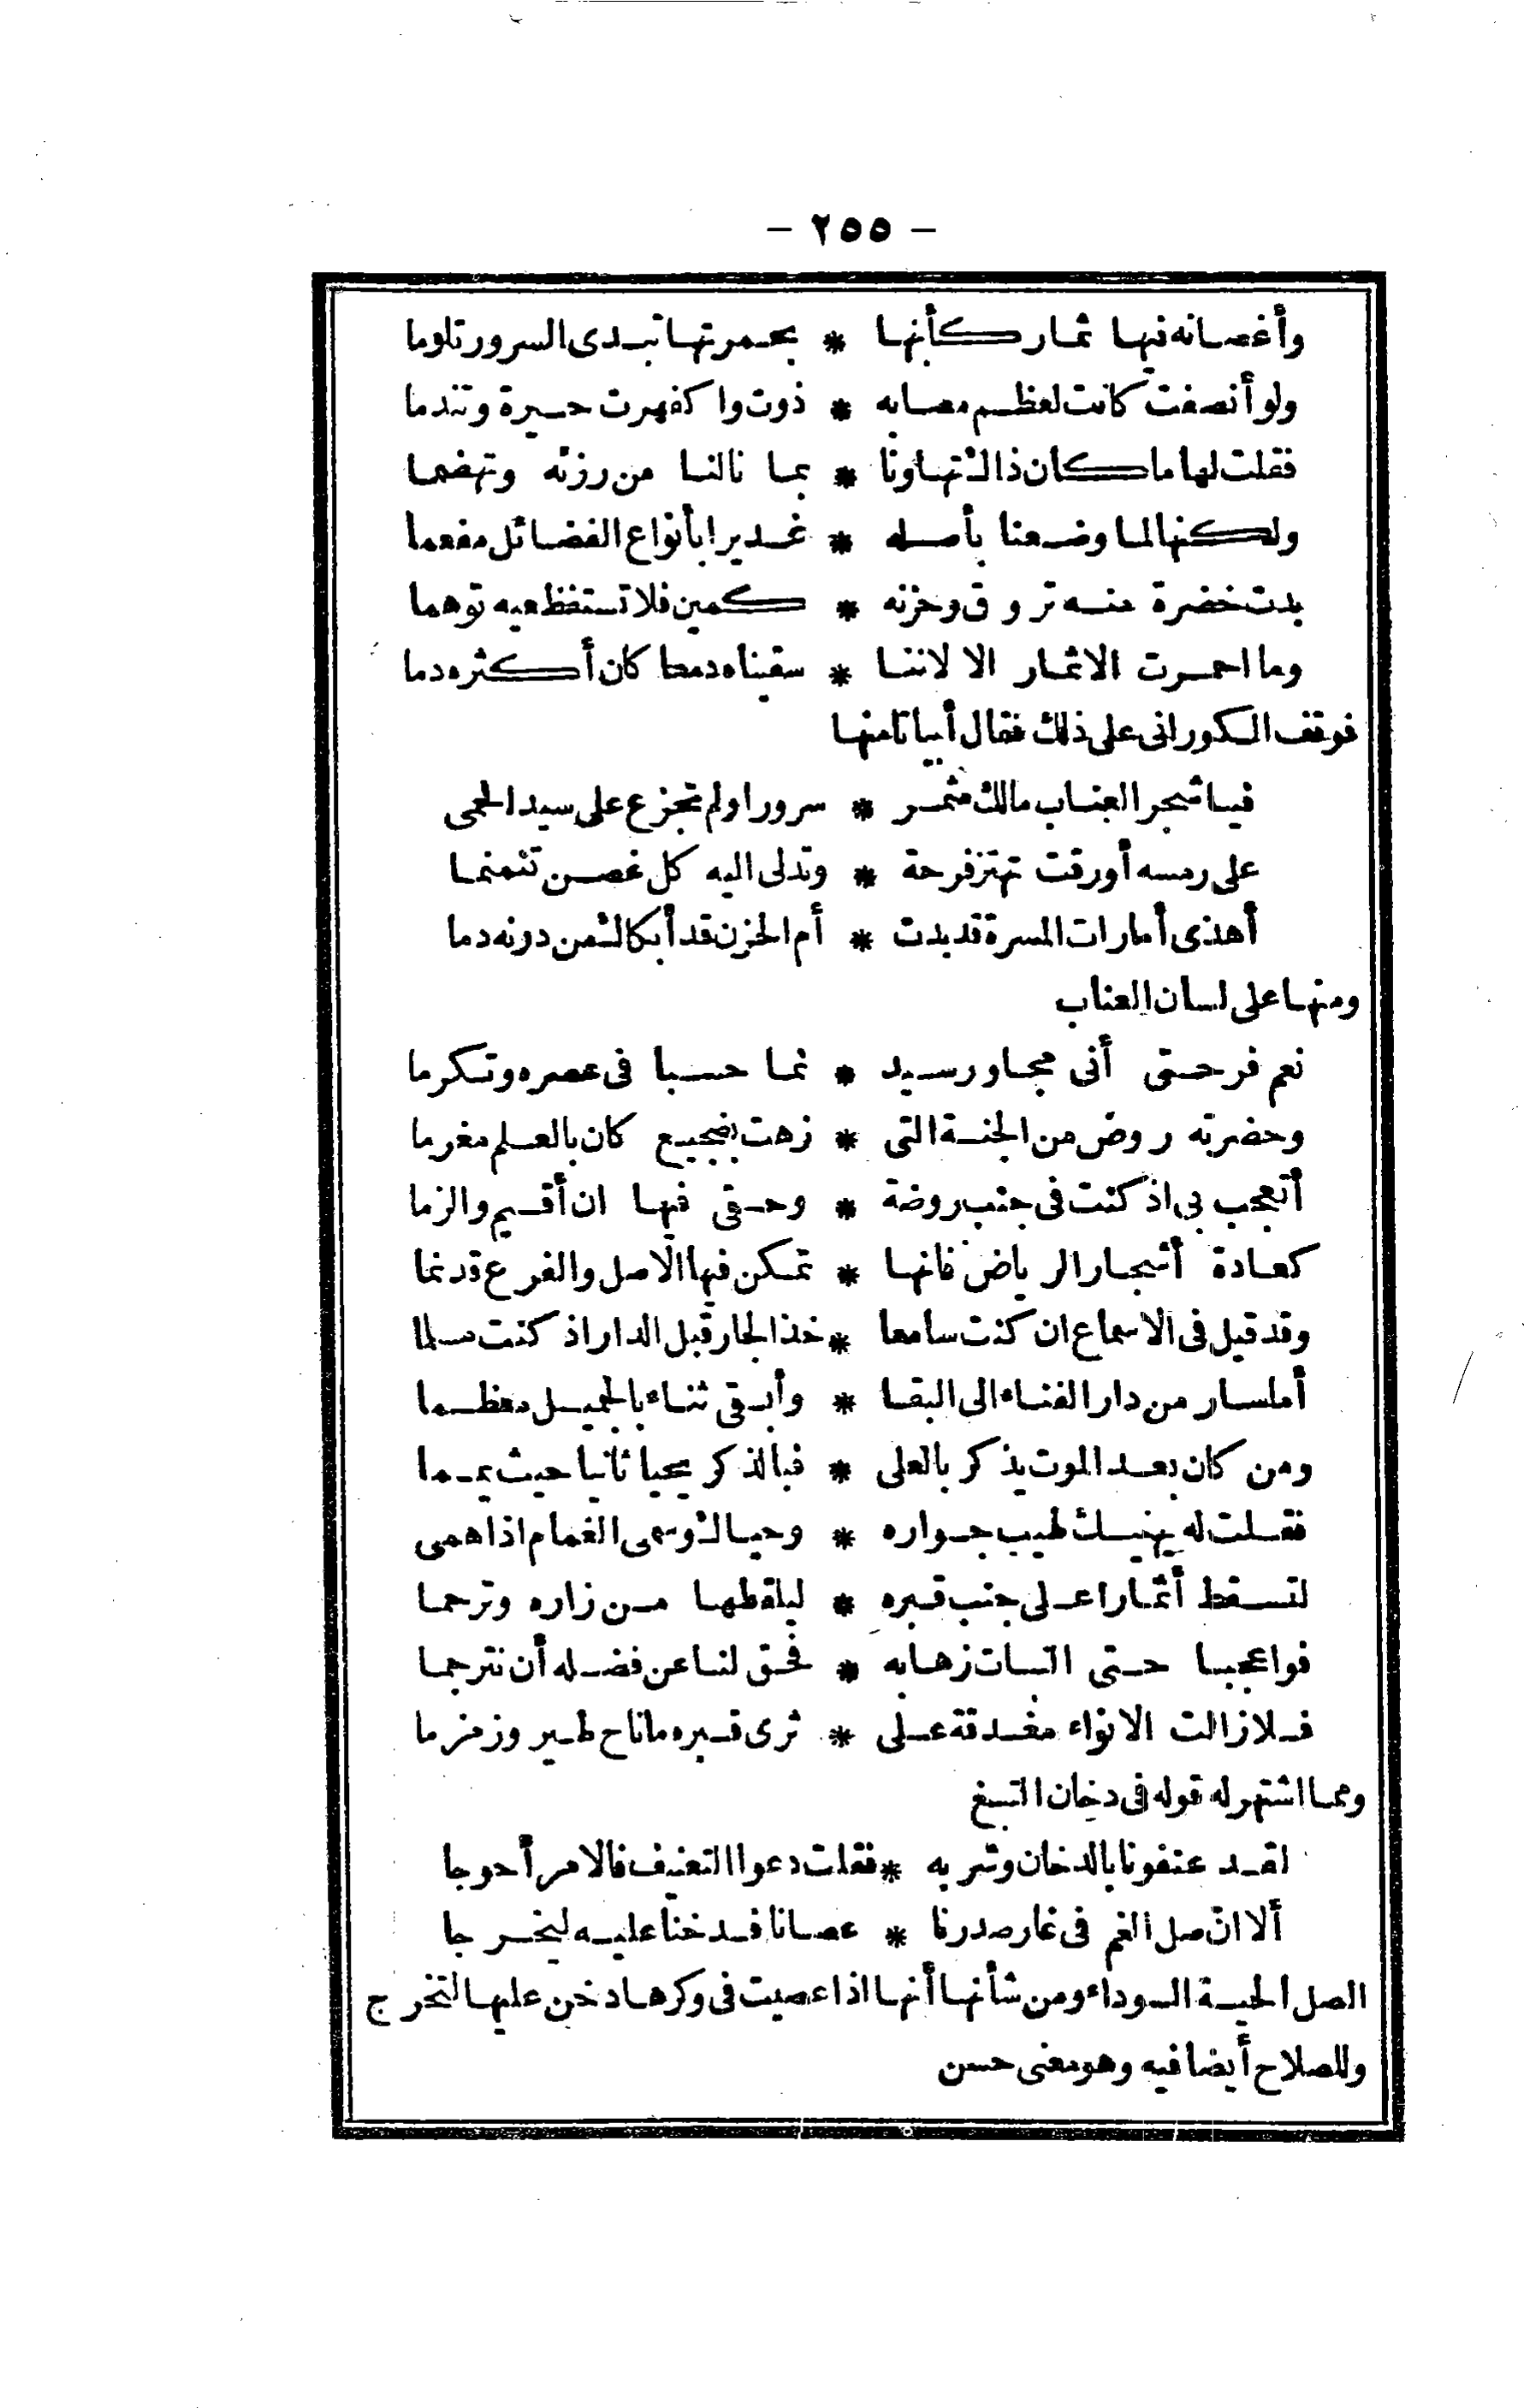 - ٢٥٥ -
وأغصانه فيها ثمار كأنها * بحمرتها تبدى السرور تلوما
ولو أنصفت كانت لعظم مصابه * ذوت واكفهرت حسرة وتندما
فقلت لها ما كان ذاك تهاونا * بما نالنا من رزئه وتهضما
ولكنها لما وضعنا بأصله * غديرا بأنواع الفضائل مفعما
بدت خضرة منه تروق وحزنه * كمين فلا تستفظعيه توهما
وما احمرت الاثمار الا لاننا * سقيناه دمعا كان أكثره دما
فوقف الكورانى على ذلك فقال أبياتا منها
فيا شجر العناب مالك مثمر * سرورا ولم تجزع على سيد الحمى
على رمسه أورقت تهتز فرحة * وتدلى اليه كل غصن تنعما
أهذى أمارات المسرة قد بدت * أم الحزن قد أبكاك من دونه دما
ومنها على لسان العناب
نعم فرحتى أنى مجاور سيد * نما حسبا فى عصره وتكرما
وحضرته روض من الجنة التى * زهت بضجيع كان بالعلم مغرما
أتعجب بى اذ كنت فى جنب روضة * وحقى فيها ان أقيم والزما
كعادة أشجار الرياض فانها * تمكن فيها الاصل والفرع قد نما
وقد قيل فى الاسماع ان كنت سامعا * خذ الجار قبل الدار اذ كنت مسلما
أما سار من دار الفناء الى البقا * وأبقى ثناء بالجميل معظما
ومن كان بعد الموت يذكر بالعلى * فبالذكر يحيا ثانيا حيث يمما
فقلت له يهنيك طيب جواره * وحياك وسمى الغمام اذا همى
لتسقط أثمارا على جنب قبره * ليلقطها من زاره وترحما
فواعجبا حتى النبات زهابه * فحق لنا عن فضله أن نترجما
فلا زالت الانواء مغدقة على * ثرى قبره ما ناح طير وزمزما
ومما اشتهر له قوله فى دخان التبغ
لقد عنفونا بالدخان وشربه * فقلت دعوا التعنيف فالامر أحوجا
ألا ان صل الغم فى غار صدرنا * عصانا فدخنا عليه ليخرجا
الصل الحية السوداء ومن شأنها أنها اذا عصيت فى وكرها دخن عليها لتخرج
وللصلاح أيضا فيه وهو معنى حسن